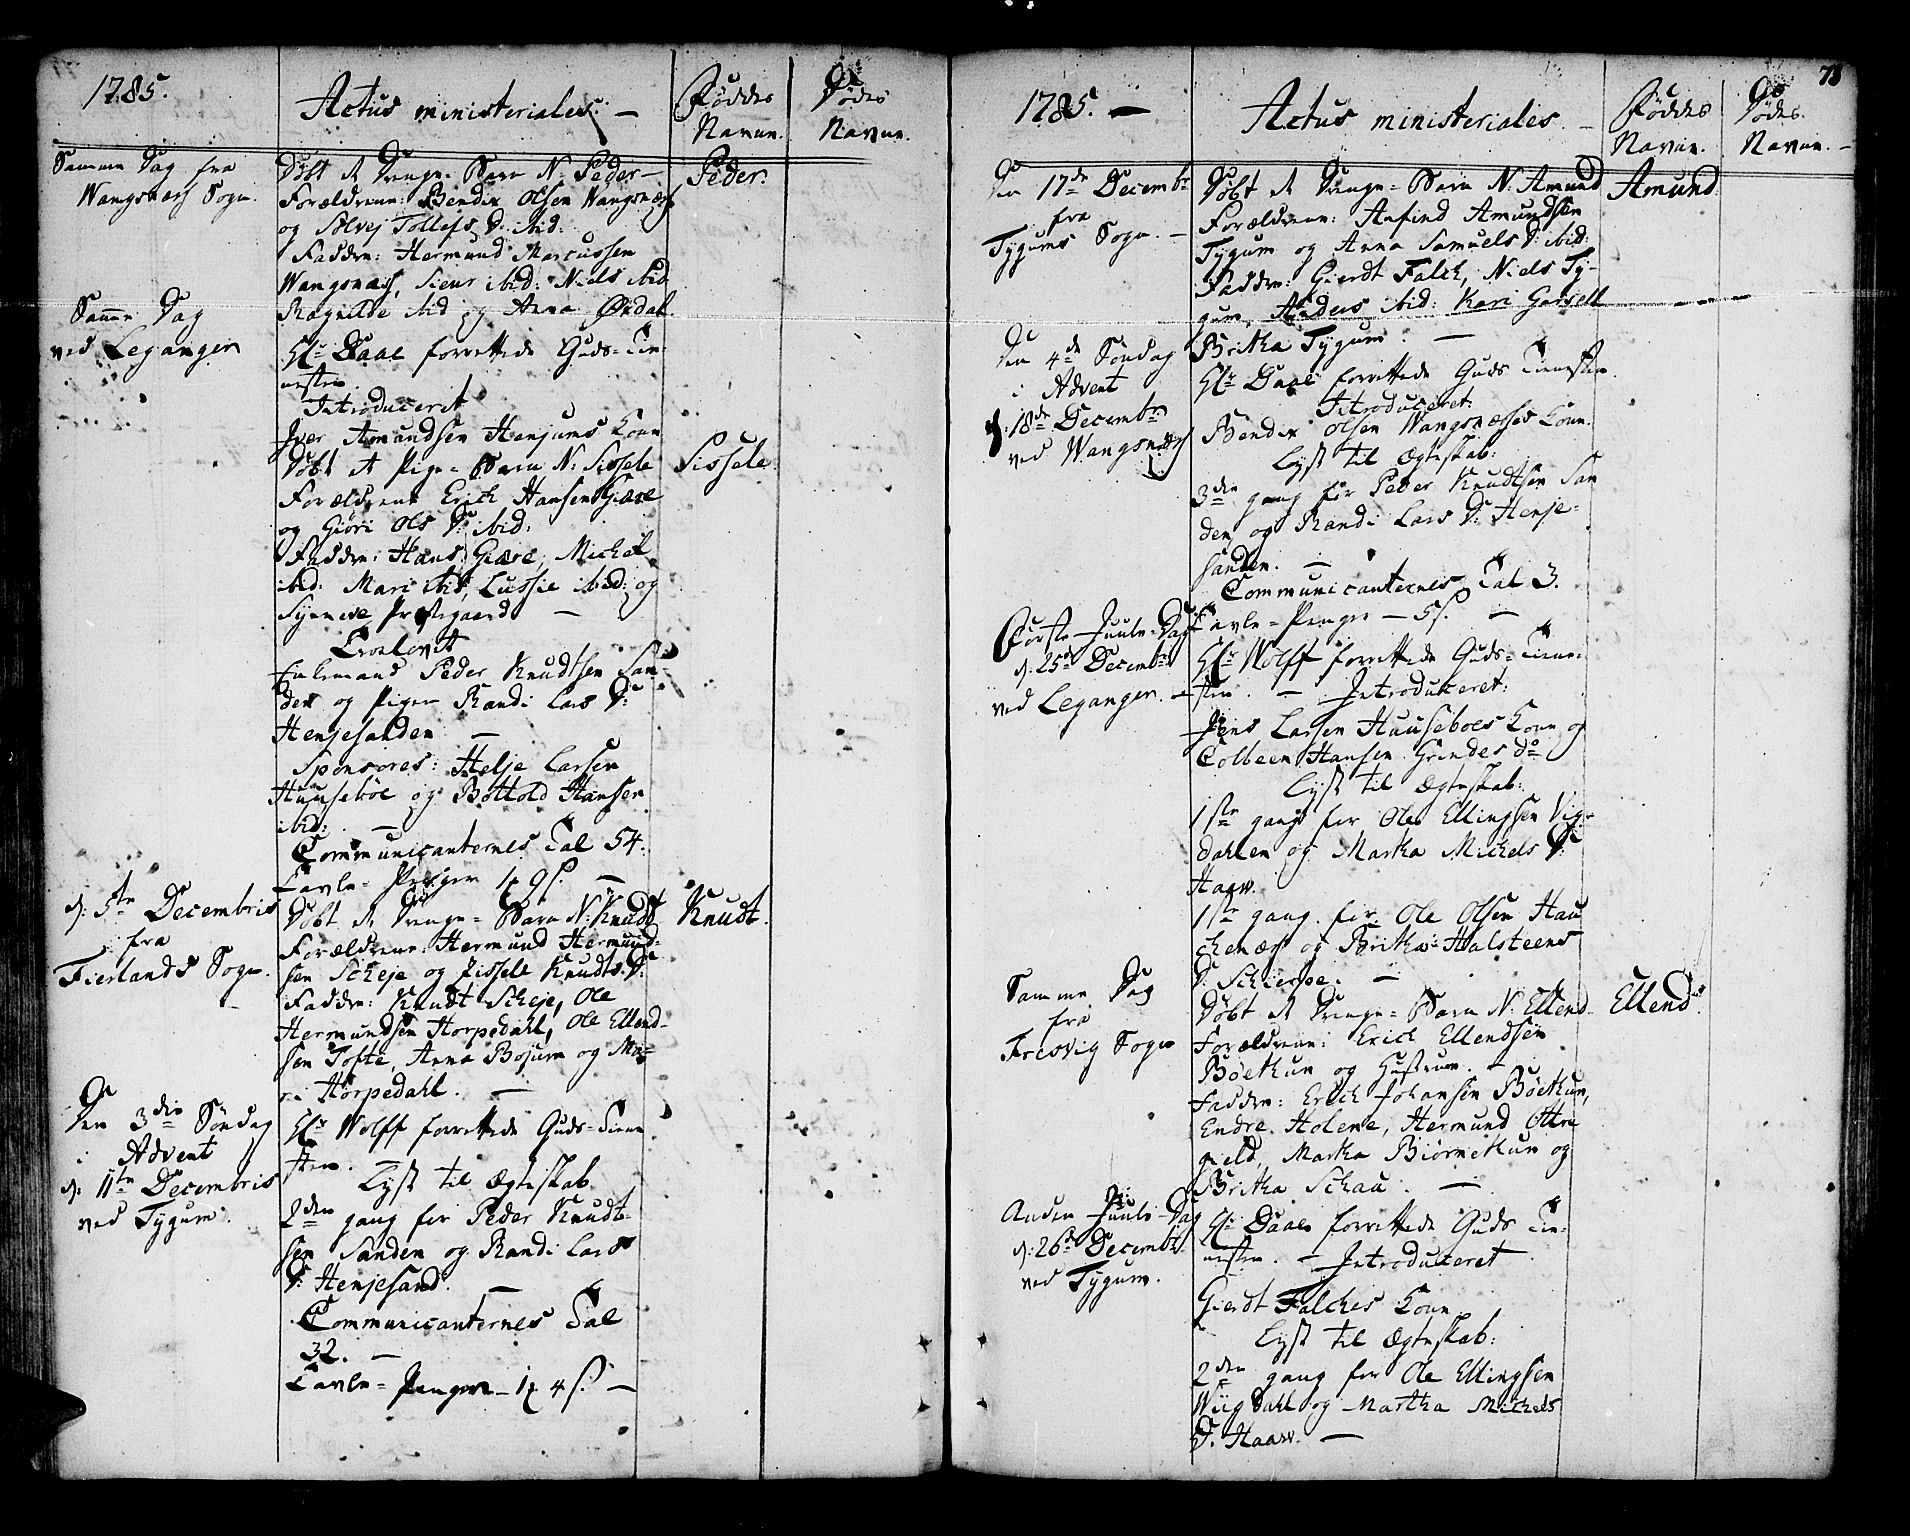 1785.
Actus ministeriales. —
Föddes
Navne.
Dödes
Navne.
Samme Dag fra
Wangsnæs Sogn.
Döbt et Drenge-Barn N: Peder —
Forældrene: Bendix Olsen Wangsnæs
og Sölvej Tollefs D: ibid:
Faddre: Hermund Marcussen
Wangsnæs, Siur ibid: Niels ibid
Ragnilde ibid og Anna
Peder.
Samme Dag
ved Leganger
Hr Daae forrettede Guds-Tie-
nesten.
Introduceret
Iver Amundsen Henjums Kone
Döbt et Pige-Barn N: Sissele
Forældrene Erich Hansen Giære
og Giöri Ols D: ibid:
Faddre: Hans Giære, Michel
ibid: Mari ibid, Lussie ibid: og
Synneve Præstegaard —
Sissele
Trolovet
Enkemand Peder Knudtsen San-
den og Pigen Randi Lars D:
Henjesanden —
Sponsores: Helje Larsen
Huuseböe og Bottold Hansen
ibid: —
Communicanternes Tal 54.
Tavle-Penger 1 9 s. —
d: 5te Decembris
fra
Fierlands Sogn.
Döbt et Drenge-Barn N: Knudt
Forældrene: Hermund Hermund-
sen Scheje og Sissele Knudts D:
Faddre: Knudt Scheje, Ole
Hermundsen Horpedahl, Ole Ellend-
sen Tofte, Anna Bojum og Ma-
ri Horpedahl. —
Knudt.
Den 3die Söndag
i Advent
d: 11te Decembris
ved Tygum.
Hr Wolff forrettede Guds-Tiene
sten.
Lyst til Ægteskab
2den gang for Peder Knudt-
sen Sanden og Randi Lars
D: Henjesand. —
Communicanternes Tal
32. —
Tavle-Penger — 1 4 s. —
78
1785. —
Actus ministeriales. —
Föddes
Navne.
Dödes
Navne. —
Den 17de Decembr
fra
Tygums Sogn. —
Döbt et Drenge-Barn N. Amund
Forældrene: Anfind Amundsen
Tygum og Anna Samuels D: ibid:
Faddre: Gierdt Falch, Niels Ty-
gum, Anders ibid: Kari
Britha Tygum. —
Amund
Den 4de Söndag
i Advent
d: 18de Decembr
ved Wangsnæs
Hr Daae forrettede Guds Tienesten.
Introduceret:
Bendix Olsen Wangsnæses Kone.
Lyst til Ægteskab:
3den gang for Peder Knudtsen San
den og Randi Lars D: Henje-
sanden. —
Communicanternes Tal 3.
Tavle-Penger — 5 s. —
Förste Juule-Dag
d: 25de Decembr
ved Leganger. —
Hr Wolff forrettede Guds-Tiene-
sten. — Introduceret:
Jens Larsen Huuseboes Kone og
Colbeen Hansen Grindes do
Lyst til Ægteskab:
1ste gang for Ole Ellingsen Vig-
dahlen og Martha Michels D:
Haaw.
1ste gang for Ole Olsen Hau
chenæs og Britha Halsteens
D: Schierpe. —
Samme Dag
fra
Fresvig Sogn
Döbt et Drenge-Barn N. Ellend
Forældrene: Erich Ellendsen
Böethun og Hustrue. —
Faddre: Erich Johansen Böethun,
Endre Holene, Hermund Ottre
gield, Martha Biörnethun og
Britha Schau. —
Ellend
Anden Juule-Dag
d: 26de Decembr
ved Tygum.
Hr Daae forrettede Guds Tie-
nesten. — Introduceret
Gierdt Falches Kone.
Lyst til Ægteskab:
2den gang for Ole Ellingsen
Wiigdahl og Martha Michels
D. Haaw. —